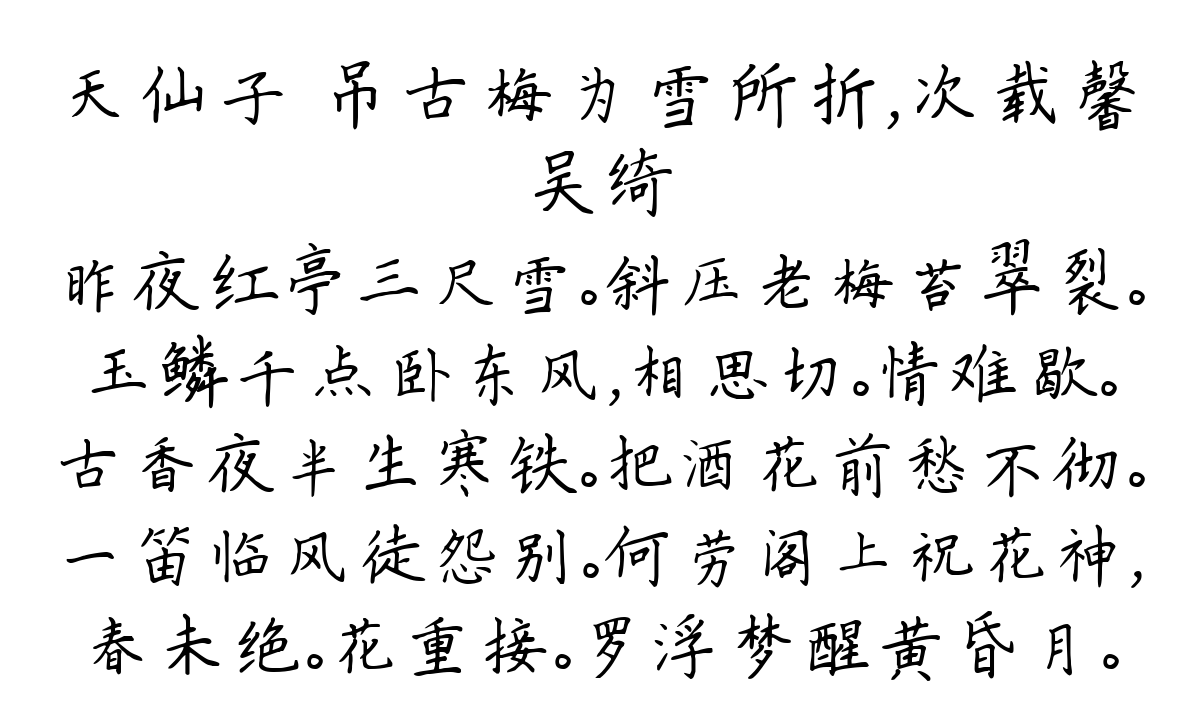 天仙子 吊古梅为雪所折,次载馨
吴绮
昨夜红亭三尺雪。斜压老梅苔翠裂。
玉鳞千点卧东风,相思切。情难歇。
古香夜半生寒铁。把酒花前愁不彻。
一笛临风徒怨别。何劳阁上祝花神,
春未绝。花重接。罗浮梦醒黄昏月。